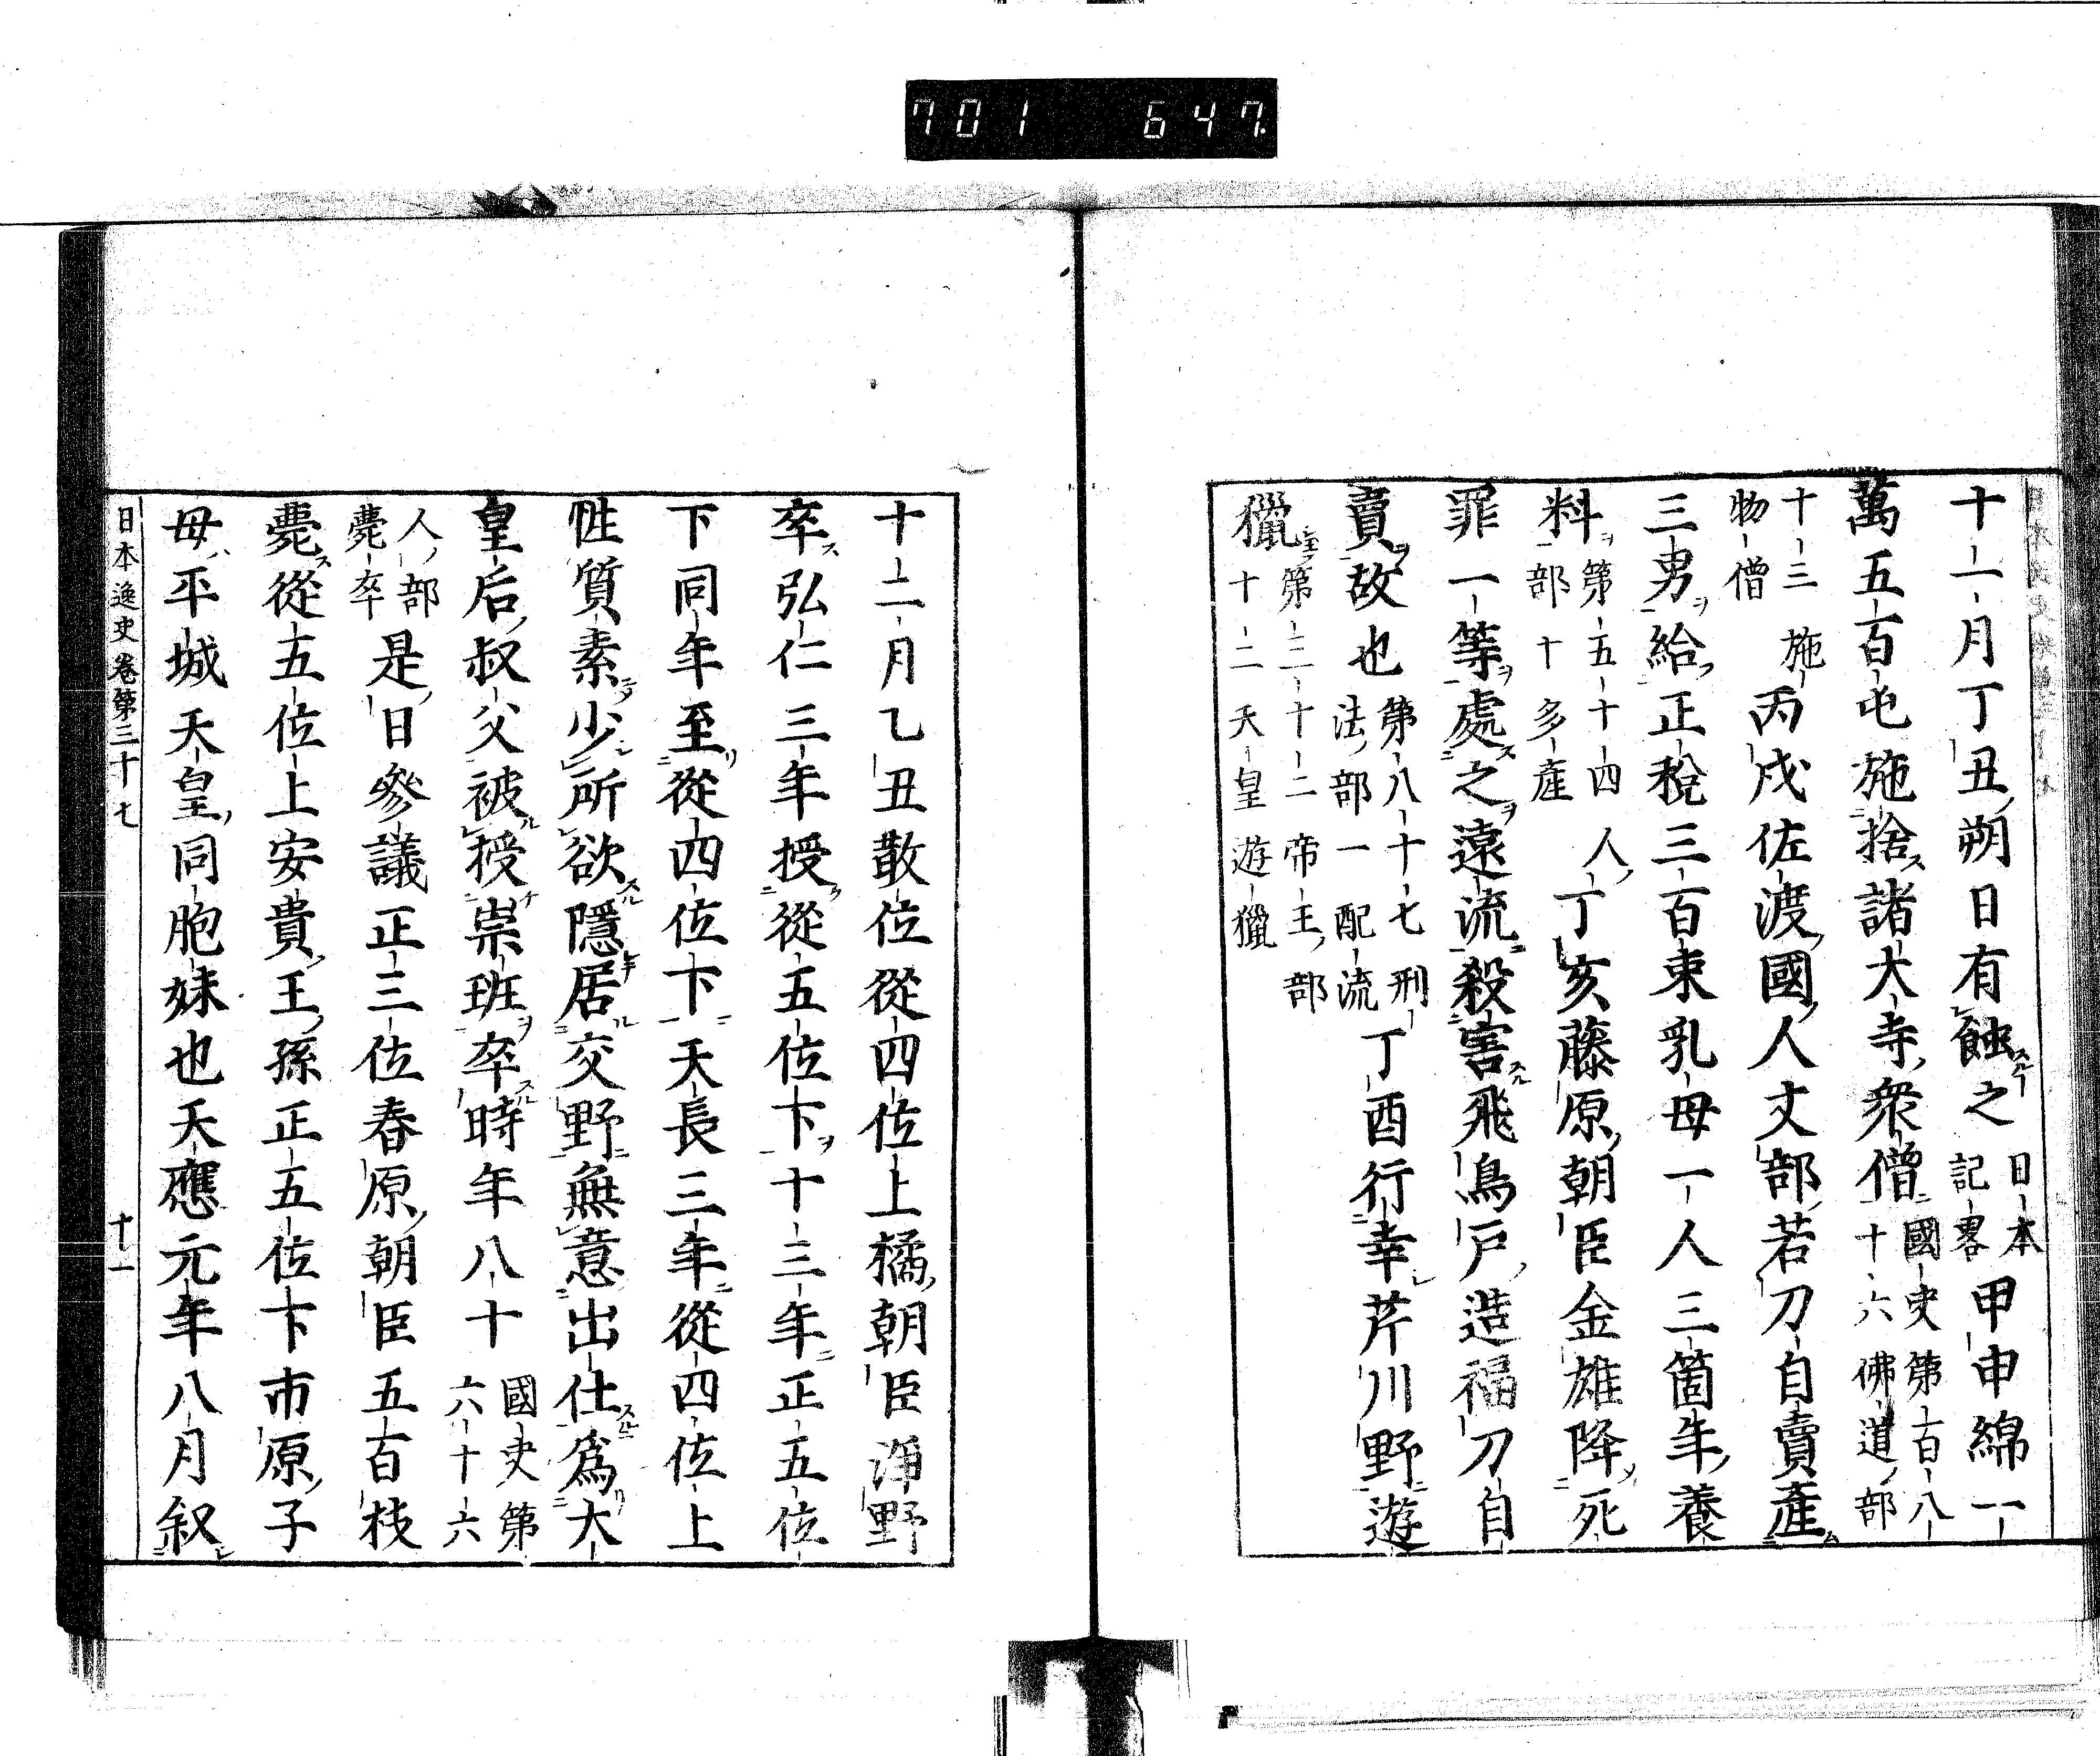 701 647
十一月丁丑朔日有蝕之日本記畧甲申綿一
萬五百屯施捨諸大寺衆僧國史第百八十六佛道部
十三施物僧丙戌佐渡國人丈部若刀自賣産
三男給正稅三百束乳母一人三箇年養
料第五十四人部十多産丁亥藤原朝臣金雄降死
罪一等處之遠流殺害飛鳥戶造福刀自
賣故也第八十七刑法部一配流丁酉行幸芹川野遊
獵第三十二帝王部十二天皇遊獵
十二月乙丑散位從四位上橘朝臣淨野
卒弘仁三年授從五位下十三年正五位
下同年至從四位下天長三年從四位上
性質素少所欲隱居交野無意出仕爲大
皇后叔父被授崇班卒時年八十國史第六十六
人部薨卒是日參議正三位春原朝臣五百枝
薨從五位上安貴王孫正五位下市原子
母平城天皇同胞妹也天應元年八月叙
日本逸史卷第三十七 十一